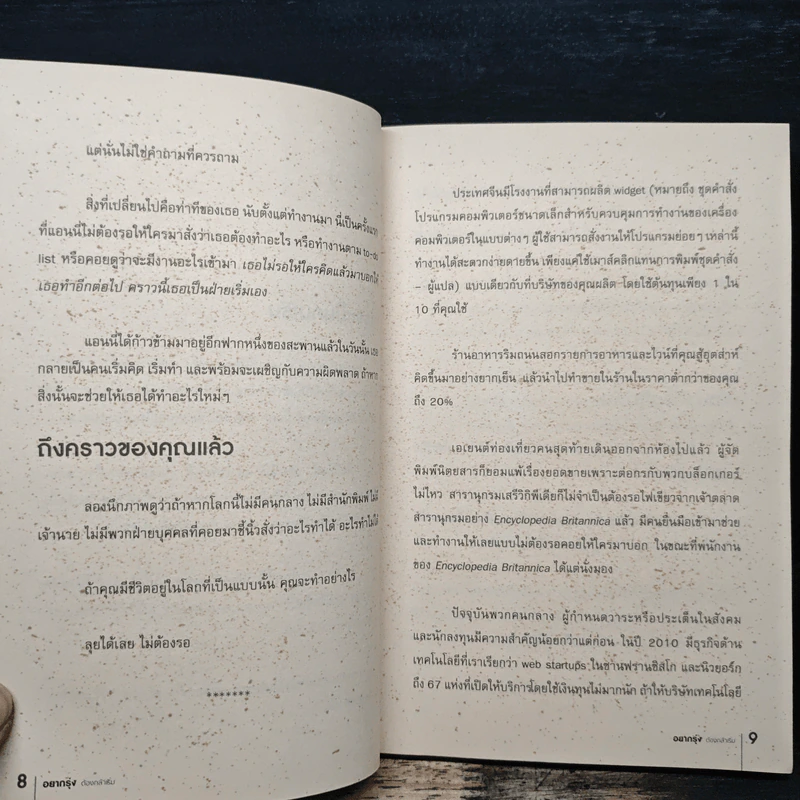 แต่นั่นไม่ใช่คำถามที่ควรถาม
สิ่งที่เปลี่ยนไปคือท่าทีของเธอ นับตั้งแต่ทำงานมา นี่เป็นครั้งแรก
ที่แอนนี่ไม่ต้องรอให้ใครมาสั่งว่าเธอต้องทำอะไร หรือทำงานตาม to-do
list หรือคอยดูว่าจะมีงานอะไรเข้ามา เธอไม่รอให้ใครคิดแล้วมาบอกให้
เธอทำอีกต่อไป คราวนี้เธอเป็นฝ่ายเริ่มเอง
แอนนี่ได้ก้าวข้ามมาอยู่อีกฟากหนึ่งของสะพานแล้วในวันนั้น เธอ
กลายเป็นคนเริ่มคิด เริ่มทำ และพร้อมจะเผชิญกับความผิดพลาด ถ้าหาก
สิ่งนั้นจะช่วยให้เธอได้ทำอะไรใหม่ๆ
ถึงคราวของคุณแล้ว
ลองนึกภาพดูว่าถ้าหากโลกนี้ไม่มีคนกลาง ไม่มีสำนักพิมพ์ ไม่มี
เจ้านาย ไม่มีพวกฝ่ายบุคคลที่คอยมาชี้นิ้วสั่งว่าอะไรทำได้ อะไรทำไม่ได้
ถ้าคุณมีชีวิตอยู่ในโลกที่เป็นแบบนั้น คุณจะทำอย่างไร
ลุยได้เลย ไม่ต้องรอ
*******
8 | อยากรุ่ง ต้องกล้าเริ่ม
ประเทศจีนมีโรงงานที่สามารถผลิต widget (หมายถึง ชุดคำสั่ง
โปรแกรมคอมพิวเตอร์ขนาดเล็กสำหรับควบคุมการทำงานของเครื่อง
คอมพิวเตอร์ในแบบต่างๆ ผู้ใช้สามารถสั่งงานให้โปรแกรมย่อยๆ เหล่านี้
ทำงานได้สะดวกง่ายดายขึ้น เพียงแค่ใช้เมาส์คลิกแทนการพิมพ์ชุดคำสั่ง
– ผู้แปล) แบบเดียวกับที่บริษัทของคุณผลิต โดยใช้ต้นทุนเพียง 1 ใน
10 ที่คุณใช้
ร้านอาหารริมถนนลอกรายการอาหารและไวน์ที่คุณสู้อุตส่าห์
คิดขึ้นมาอย่างยากเย็น แล้วนำไปทำขายในร้านในราคาต่ำกว่าของคุณ
ถึง 20%
เอเยนต์ท่องเที่ยวคนสุดท้ายเดินออกจากห้องไปแล้ว ผู้จัด
พิมพ์นิตยสารก็ยอมแพ้เรื่องยอดขายเพราะต่อกรกับพวกบล็อกเกอร์
ไม่ไหว สารานุกรมเสรีวิกิพีเดียก็ไม่จำเป็นต้องรอไฟเขียวจากเจ้าตลาด
สารานุกรมอย่าง Encyclopedia Britannica แล้ว มีคนยื่นมือเข้ามาช่วย
และทำงานให้เลยแบบไม่ต้องรอคอยให้ใครมาบอก ในขณะที่พนักงาน
ของ Encyclopedia Britannica ได้แต่นั่งมอง
ปัจจุบันพวกคนกลาง ผู้กำหนดวาระหรือประเด็นในสังคม
และนักลงทุนมีความสำคัญน้อยกว่าแต่ก่อน ในปี 2010 มีธุรกิจด้าน
เทคโนโลยีที่เราเรียกว่า web startups ในซานฟรานซิสโก และนิวยอร์ก
ถึง 67 แห่งที่เปิดให้บริการโดยใช้เงินทุนไม่มากนัก ถ้าให้บริษัทเทคโนโลยี
อยากรุ่ง ต้องกล้าเริ่ม | 9